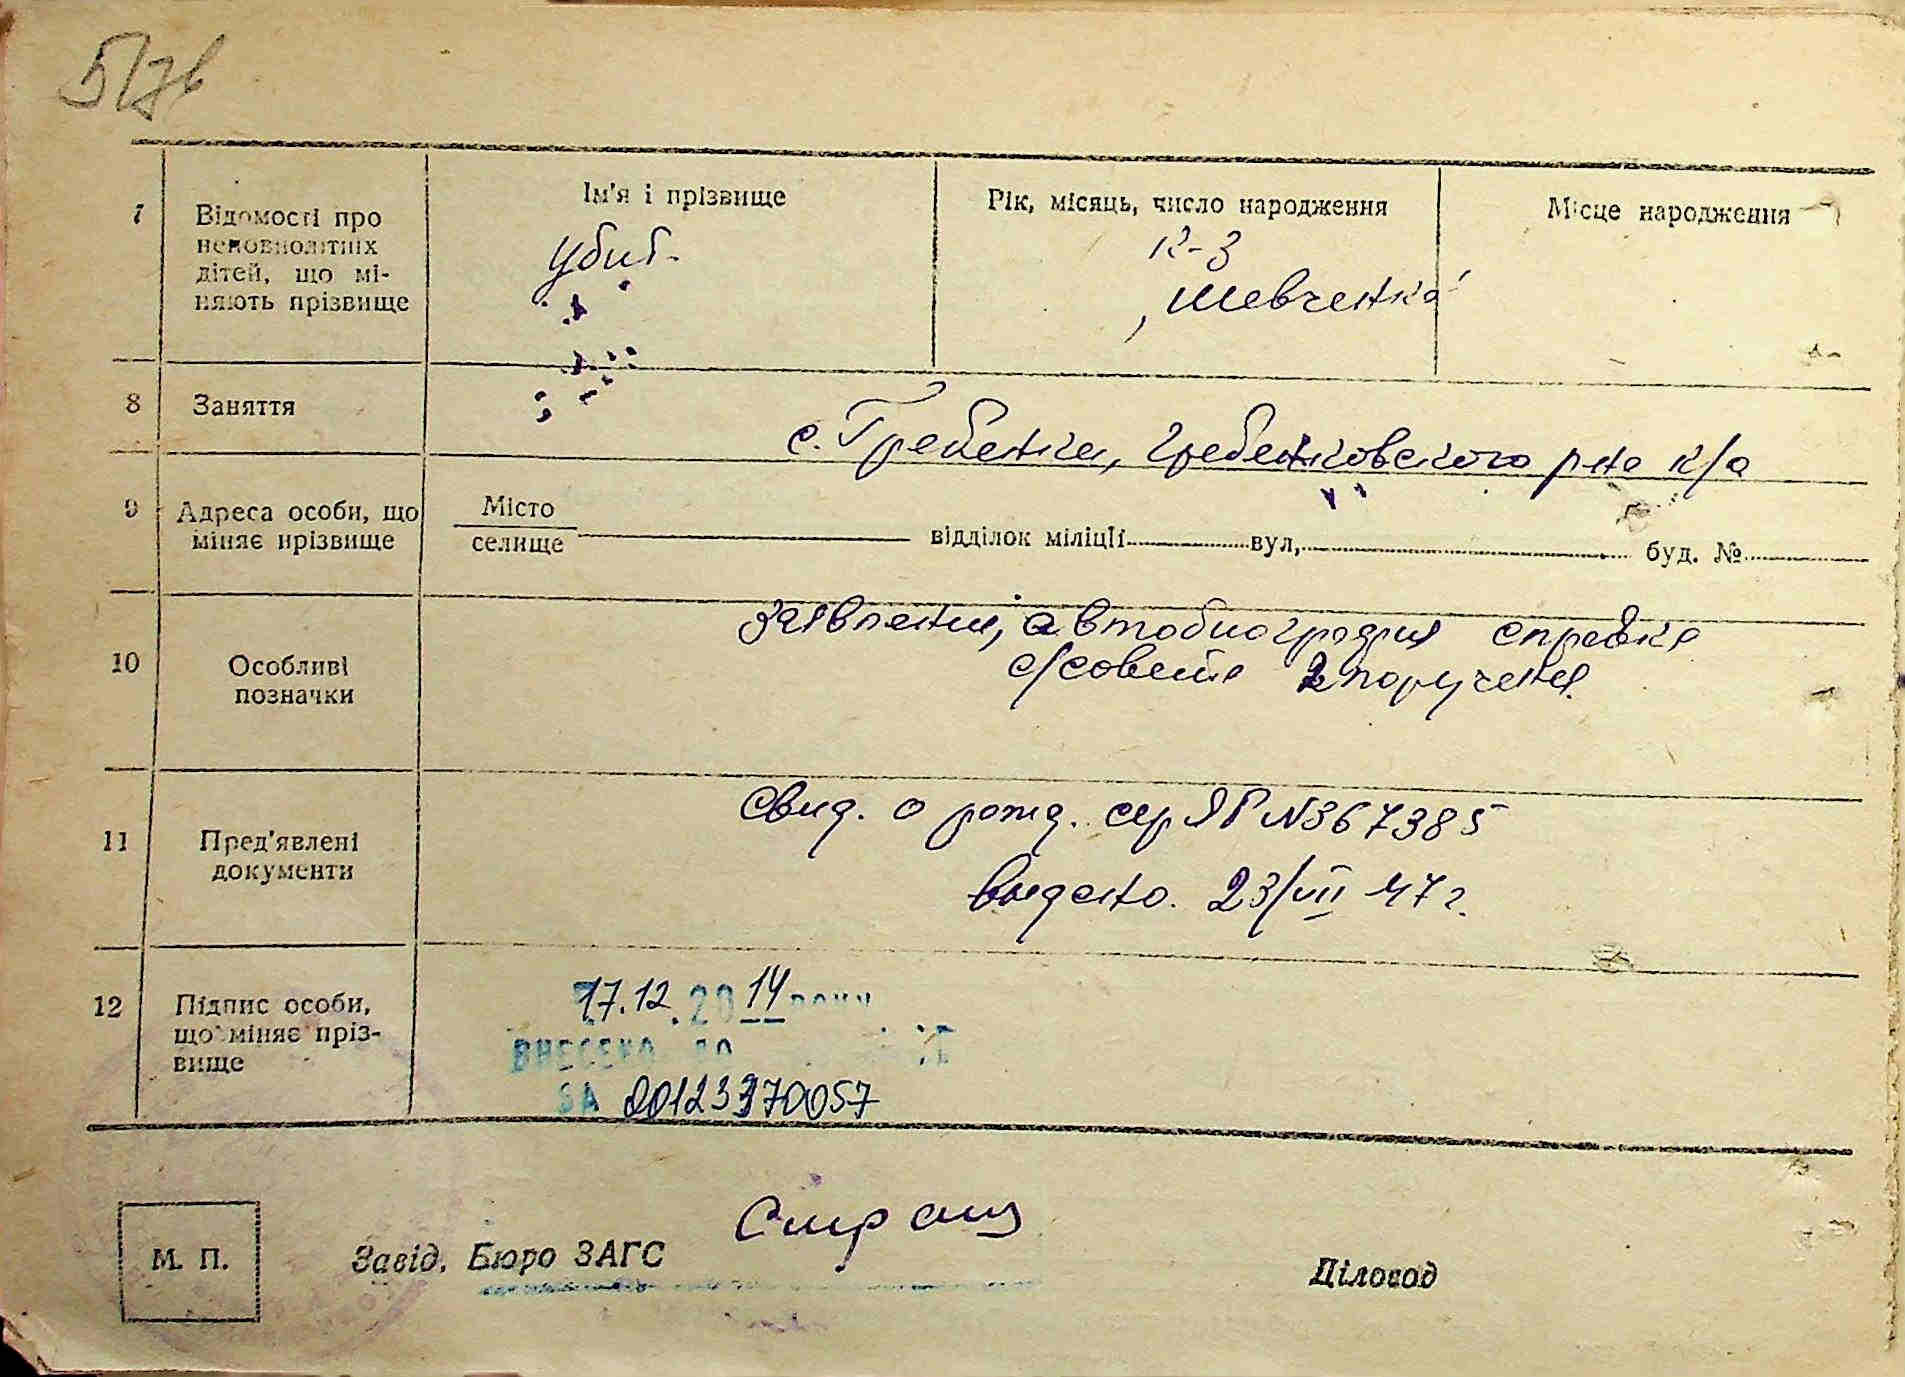 Ім'я і прізвище
Рік, місяць, число народження
Місце народження
7
Відомості про
неповнолітніх
дітей, що мі-
няють прізвище
к-з
Шевченка
8
Заняття
с. Гребенки, Гребенковского р-на к/о
9
Адреса особи, що
міняє прізвище
Місто
селище
відділок міліції
вул,
буд. №
10
Особливі
позначки
заявление, автобиография справка
с/совета 2 поручения
11
Пред'явлені
документи
Свид. о рожд. сер ЯГ N367385
выдано. 23/VII 47 г.
12
Підпис особи,
що міняє пріз-
вище
17.12.2014 року
ВНЕСЕНО ДО
М. П.
Завід. Бюро ЗАГС
Діловод